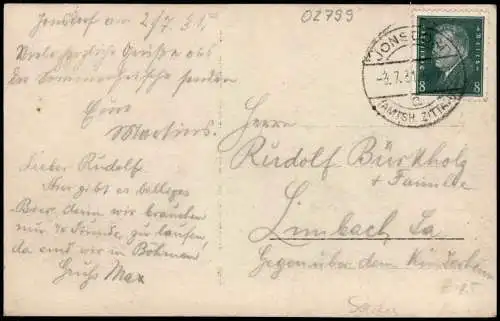 Jonsdorf am 2/7.31.
02799
Viele herzliche Grüße aus
der Sommerfrische senden
Eure
Martins.
Lieber Rudolf.
Hier gibt es
Bier, denn wir brauchen
nur ¾ Stunde zu laufen,
da sind wir in Böhmen!
Gruß Max
JONSDORF
2.7.31
a
(AMTSH. ZITTAU)
8 8
Herrn
Rudolf Bürkholz
+ Familie
Limbach, Sa
Gegenüber dem